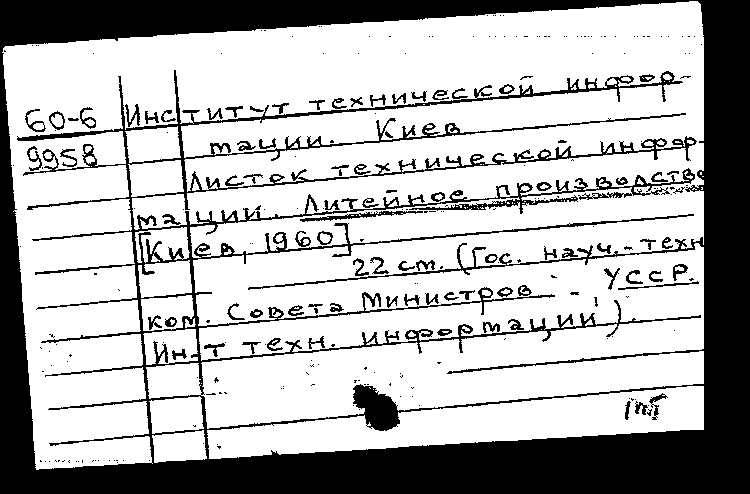 60-6 Институт технической инфор-
9958 мации. Киев
Листок технической инфор-
мации. Литейное производство
[Киев, 1960].
22 см. (Гос. науч.-техн
ком. Совета Министров УССР.
Ин-т техн. информации).